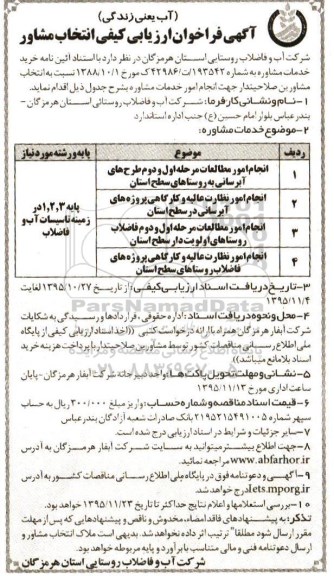 (آب یعنی زندگی)
آگهی فراخوان ارزیابی کیفی انتخاب مشاور
شرکت آب و فاضلاب روستایی استان هرمزگان در نظر دارد با استناد آئین نامه خرید
خدمات مشاوره به شماره ۱۹۳۵۴۲/ت۴۲۹۸۶ک مورخ ۱۳۸۸/۱۰/۱ نسبت به انتخاب
مشاورین صلاحیتدار جهت انجام امور خدمات مشاوره بشرح جدول ذیل اقدام نماید.
۱-نام و نشانی کارفرما: شرکت آب و فاضلاب روستائی استان هرمزگان -
بندرعباس بلوار امام حسین (ع) جنب اداره استاندارد.
۲-موضوع خدمات مشاوره:
ردیف موضوع پایه و رشته مورد نیاز
۱ انجام امور مطالعات مرحله اول و دوم طرح های
آبرسانی به روستاهای سطح استان
۲ انجام امور نظارت عالیه و کارگاهی پروژه های
آبرسانی در سطح استان
۳ انجام امور مطالعات مرحله اول و دوم فاضلاب
روستاهای اولویت دار سطح استان
۴ انجام امور نظارت عالیه و کارگاهی پروژه های
فاضلاب روستاهای سطح استان
پایه ۱,۲,۳ در
زمینه تاسیسات آب و
فاضلاب
۳-تاریخ دریافت اسناد ارزیابی کیفی: از تاریخ ۱۳۹۵/۱۰/۲۷ لغایت
۱۳۹۵/۱۱/۴
۴-محل و نحوه دریافت اسناد: اداره حقوقی، قراردادها و رسیدگی به شکایات
شرکت آبفار هرمزگان همراه با ارائه درخواست کتبی ((اخذ اسناد ارزیابی کیفی از پایگاه
ملی اطلاع رسانی مناقصات کشور توسط مشاورین صلاحیتدار با پرداخت هزینه خرید
اسناد بلامانع میباشد))
۵-نشانی و مهلت تحویل پاکت ها: واحد دبیرخانه شرکت آبفار هرمزگان-پایان
ساعت اداری مورخ ۱۳۹۵/۱۱/۱۳
۶-قیمت اسناد مناقصه و شماره حساب: واریز مبلغ ۳۰۰/۰۰۰ ریال به حساب
سپهر شماره ۲۱۹۵۲۱۵۴۹۱۰۰۵ بانک صادرات شعبه آزادگان بندرعباس
۷-سایر جزئیات و شرایط در اسناد ارزیابی درج شده است.
۸-جهت اطلاع بیشتر میتوانید به سایت شرکت آبفار هرمزگان به آدرس
www.abfarhor.ir مراجعه نمائید.
۹-آگهی و دعوتنامه فوق در پایگاه ملی اطلاع رسانی مناقصات کشور به آدرس
iets.mporg.ir درج خواهد شد.
۱۰-بررسی استعلامها و اعلام نتایج حداکثر تا تاریخ ۱۳۹۵/۱۱/۲۳ خواهد بود.
تذکر: به پیشنهادهای فاقد امضاء، مخدوش و ناقص و پیشنهادهایی که پس از مهلت
مقرر ارسال شود مطلقا" ترتیب اثر داده نخواهد شد. بدیهی است ملاک انتخاب مشاور و
ارسال دعوتنامه فنی و مالی متناسب با برآورد و پایه مربوطه خواهد بود.
شرکت آب و فاضلاب روستایی استان هرمزگان